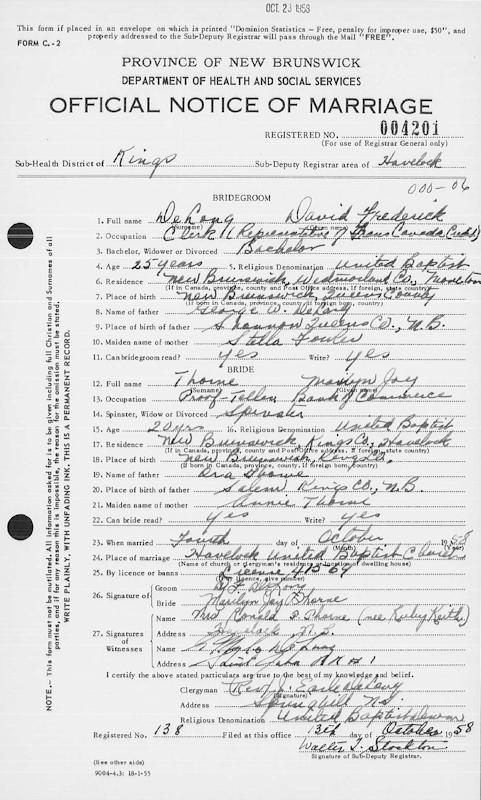 OCT 23 1958
This form if placed in an envelope on which is printed "Dominion Statistics – Free, penalty for improper use, $50", and
properly addressed to the Sub-Deputy Registrar will pass through the Mail "FREE".
FORM C.-2
PROVINCE OF NEW BRUNSWICK
DEPARTMENT OF HEALTH AND SOCIAL SERVICES
OFFICIAL NOTICE OF MARRIAGE
REGISTERED NO. 004201
(For use of Registrar General only)
Sub-Health District of Kings Sub-Deputy Registrar area of Havelock
000-06
BRIDEGROOM
1. Full name DeLong David Frederick
(Surname) (Given name)
2. Occupation Clerk Representative of Trans Canada Credit
3. Bachelor, Widower or Divorced Bachelor
4. Age 25 years 5. Religious Denomination United Baptist
6. Residence New Brunswick, Westmorland Co., Moncton
(If in Canada, province, county and Post Office address. If foreign, state country)
7. Place of birth New Brunswick, Queens County
(If born in Canada, province, county. If foreign born, country)
8. Name of father George W. DeLong
9. Place of birth of father Shannon Queens Co., N.B.
10. Maiden name of mother Stella Fowler
11. Can bridegroom read? Yes Write? Yes
BRIDE
12. Full name Thorne Marilyn Joy
(Surname) (Given name)
13. Occupation Proof Teller Bank of Commerce
14. Spinster, Widow or Divorced Spinster
15. Age 20 yrs 16. Religious Denomination United Baptist
17. Residence New Brunswick, Kings Co., Havelock
(If in Canada, province, county and Post Office address. If foreign, state country)
18. Place of birth New Brunswick, Kings Co.
(If born in Canada, province, county. If foreign born, country)
19. Name of father Ora Thorne
20. Place of birth of father Salem Kings Co., N.B.
21. Maiden name of mother Annie Thorne
22. Can bride read? Yes Write? Yes
23. When married Fourth day of October 1958
(Month) (Year)
24. Place of marriage Havelock United Baptist Church
(Name of church or clergyman's residence or location of dwelling house)
25. By licence or banns License 41369
(If licence, give number)
26. Signature of Groom D. F. DeLong
Bride Marilyn Joy Thorne
27. Signatures of Witnesses
Name Mrs Ronald S. Thorne (nee Keith)
Address Havelock N.B.
Name DeLong
Address Saint John R R # 1
I certify the above stated particulars are true to the best of my knowledge and belief.
Clergyman (Rev) J. Earle DeLong
(Signature)
Address Springhill N.S.
Religious Denomination United Baptist
Registered No. 138 Filed at this office 13th day of October 1958
Walter T. Stockton
Signature of Sub-Deputy Registrar.
(See other aide)
9004-4.3: 18-1-55
NOTE.– This form must not be mutilated. All information asked for is to be given including full Christian and Surnames of all
parties, and if for any reason this is impossible, the reason for the omission must be stated.
WRITE PLAINLY, WITH UNFADING INK. THIS IS A PERMANENT RECORD.